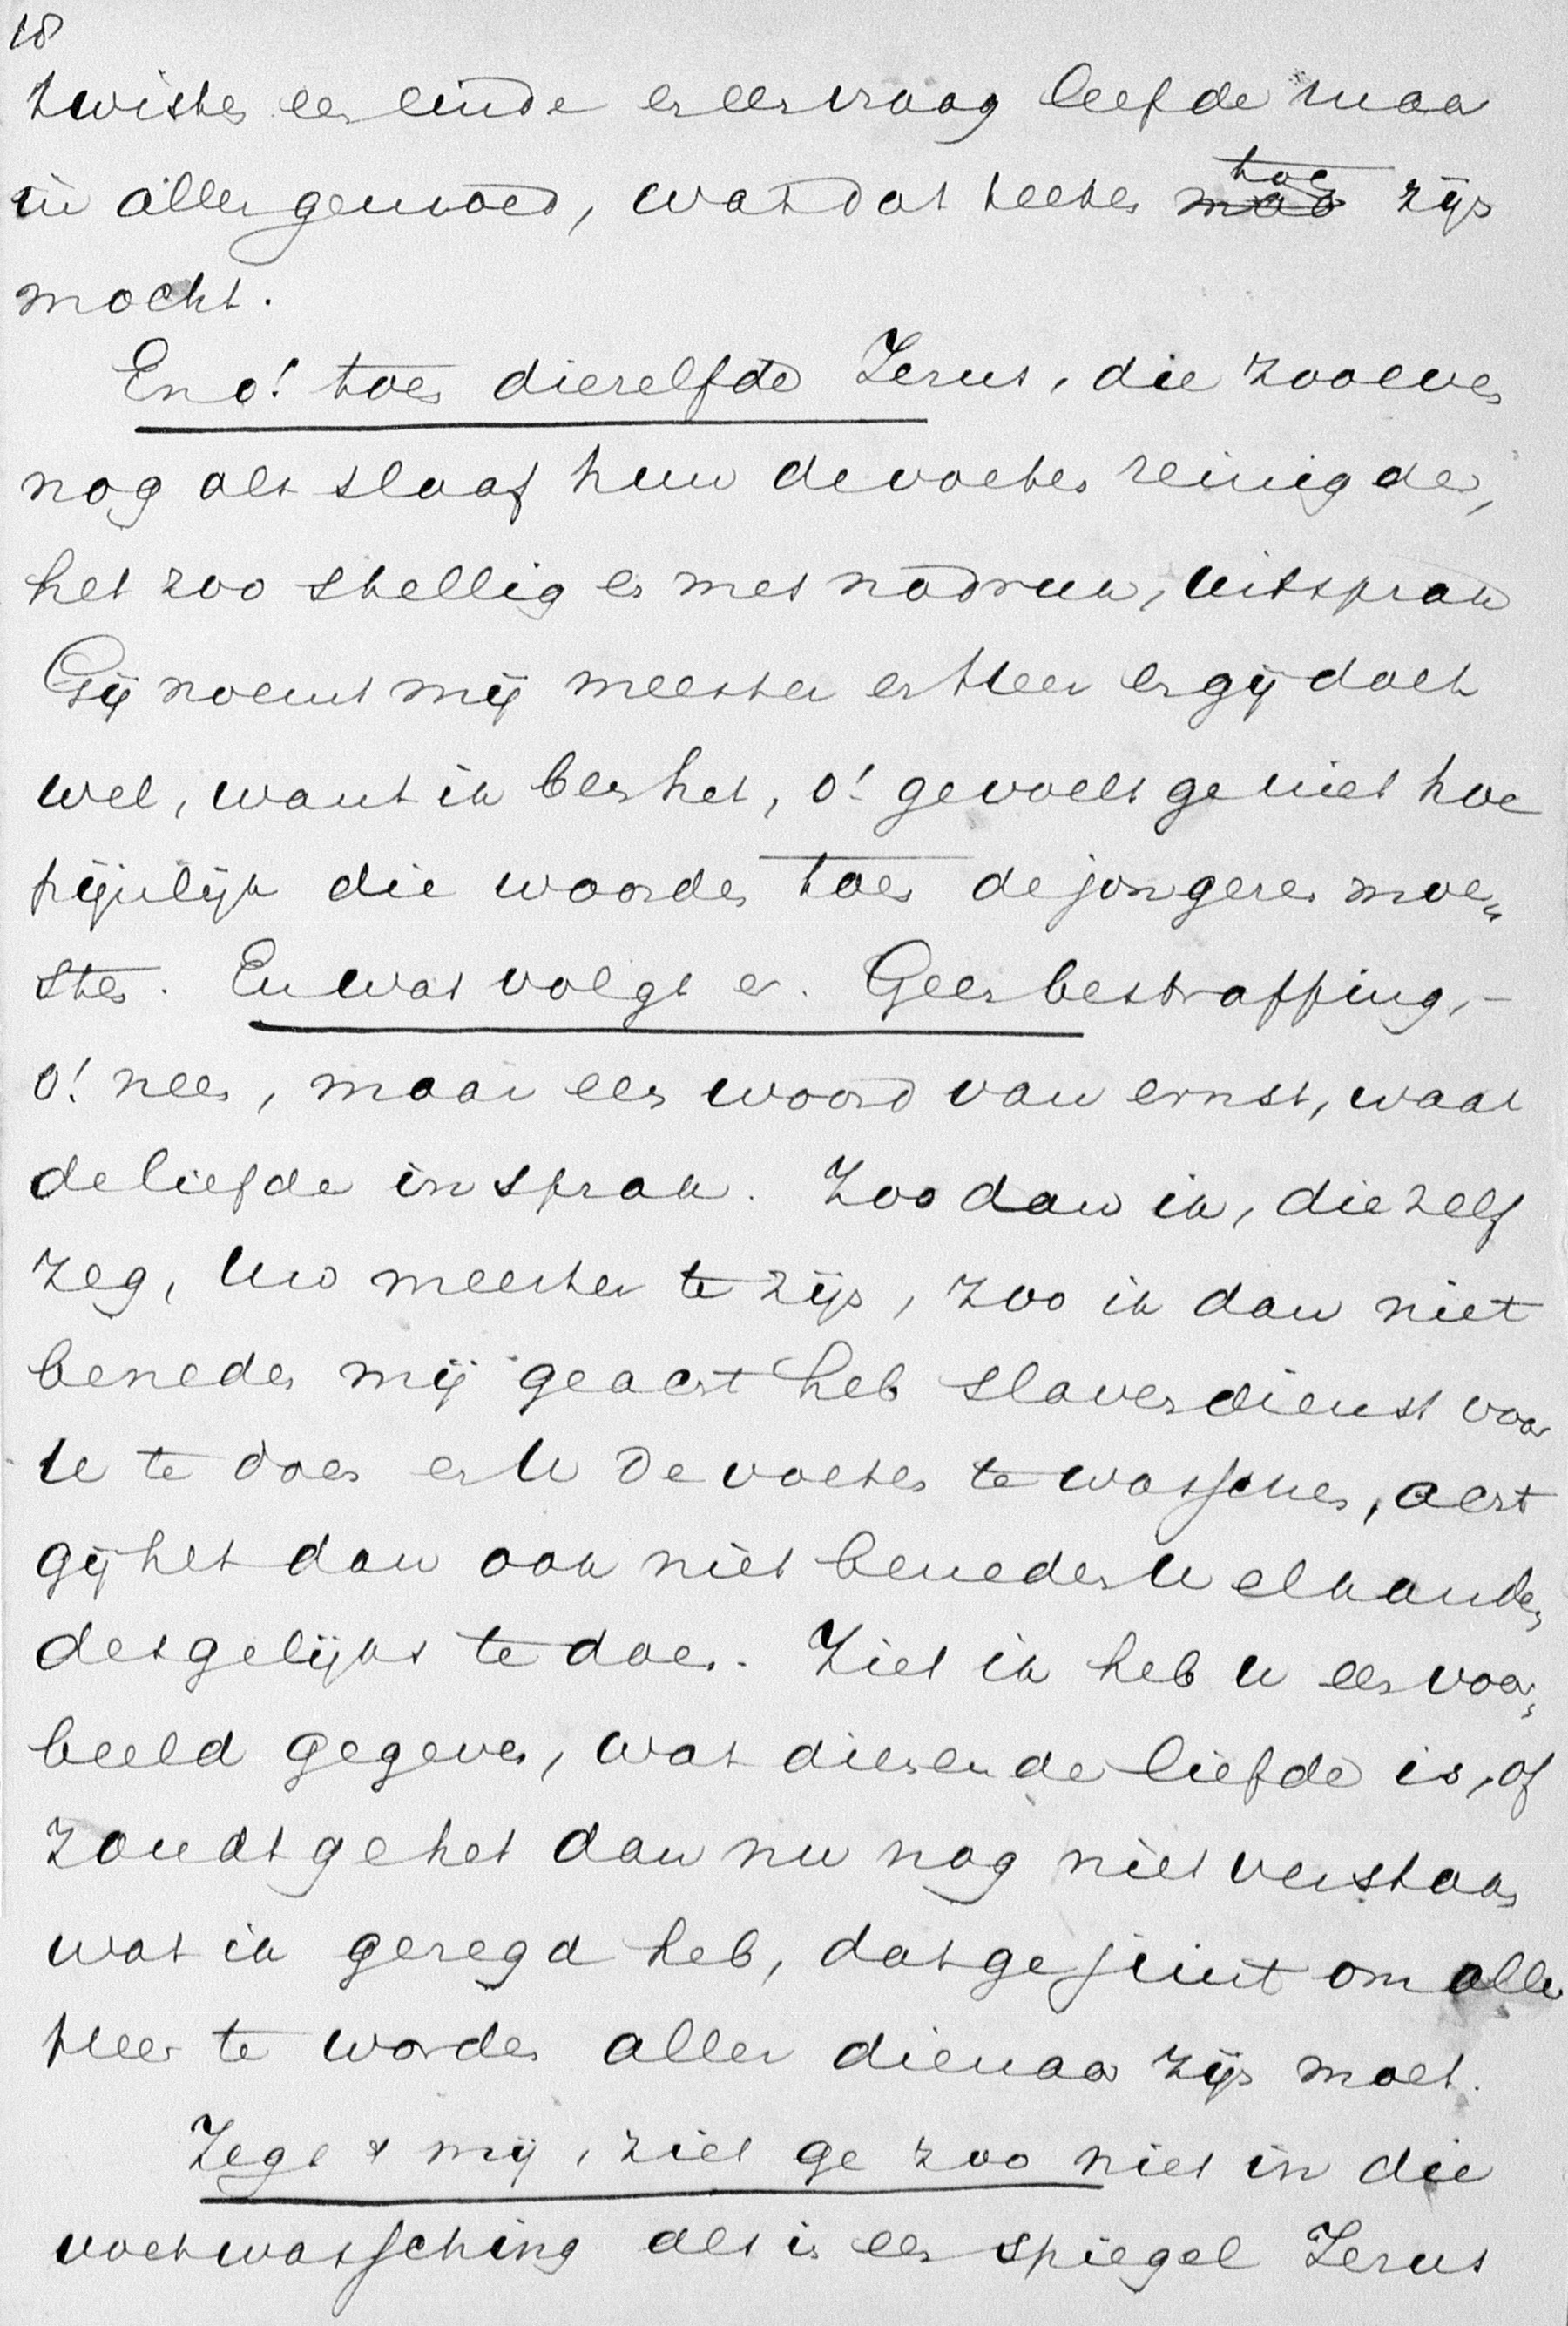 18
twisten een einde en een vraag leefde maar
in aller gemoed, wat dat heeten toe zijn
mocht.
En o! toen dierelfde Jezus, die zooeven
nog als slaaf hun de voeten reinigde,
het zoo stellig en met nadruk, uitsprak
Gij noemt mij meester en Heer en gij doet
wel, want ik ben het, o! gevoelt ge niet hoe
pijnlijk die woorden toen de jongeren moe„
sten. En wat volgt er. Geen bestraffing, –
o! neen, maar een woord van ernst, waar
de liefde in sprak. Zoo dan ik, die zelf
zeg, Uw meester te zijn, zoo ik dan niet
beneden mij geacht heb slavendienst voor
U te doen en U de voeten te wasschen, acht
gij het dan ook niet beneden U elkander
desgelijks te doen. Ziet ik heb u een voor„
beeld gegeven, wat dienende liefde is, of
zoudt ge het dan nu nog niet verstaan
wat ik gezegd heb, dat ge juist om aller
Heer te worden aller dienaar zijn moet.
Zegt mij, ziet ge zoo niet in die
voetwassching als in een spiegel Jezus